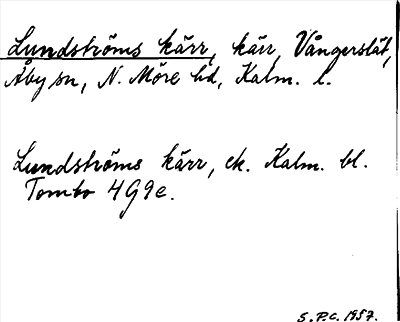 Lundströms kärr, kärr, Vångerslät,
Åby sn, N. Möre hd, Kalm. l.
Lundströms kärr, ek. Kalm. bl.
Tombo 4G9e.
S.P.C. 1957.